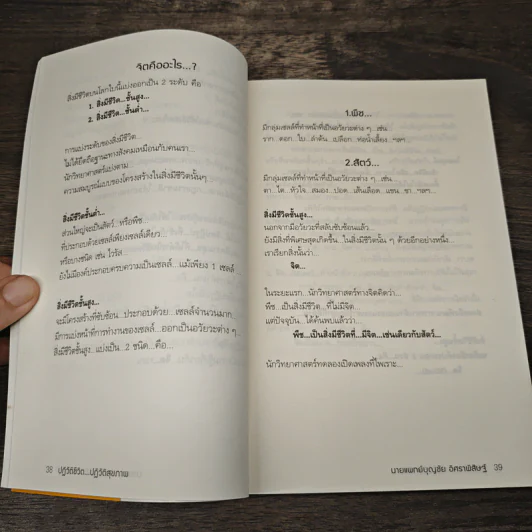 จิตคืออะไร...?
สิ่งมีชีวิตบนโลกใบนี้แบ่งออกเป็น 2 ระดับ คือ
1. สิ่งมีชีวิต...ชั้นสูง...
2. สิ่งมีชีวิต...ชั้นต่ำ...
การแบ่งระดับของสิ่งมีชีวิต...
ไม่ได้ยึดถือฐานะทางสังคมเหมือนกับคนเรา...
นักวิทยาศาสตร์แบ่งตาม
ความสมบูรณ์แบบของโครงสร้างในสิ่งมีชีวิตนั้นๆ
สิ่งมีชีวิตชั้นต่ำ...
ส่วนใหญ่จะเป็นสัตว์...หรือพืช...
ที่ประกอบด้วยเซลล์เพียงเซลล์เดียว...
หรือบางชนิด เช่น ไวรัส...
ยังไม่มีองค์ประกอบครบความเป็นเซลล์...แม้เพียง 1 เซลล์
สิ่งมีชีวิตชั้นสูง...
จะมีโครงสร้างที่ซับซ้อน...ประกอบด้วย...เซลล์จำนวนมาก...
มีการแบ่งหน้าที่การทำงานของเซลล์...ออกเป็นอวัยวะต่าง ๆ...
สิ่งมีชีวิตชั้นสูง...แบ่งเป็น...2 ชนิด...คือ...
38 ปฏิวัติชีวิต...ปฏิวัติสุขภาพ
1.พืช...
มีกลุ่มเซลล์ที่ทำหน้าที่เป็นอวัยวะต่าง ๆ...เช่น
ราก...ดอก...ใบ...ลำต้น...เปลือก...ท่อน้ำเลี้ยง...ฯลฯ...
2.สัตว์...
มีกลุ่มเซลล์ที่ทำหน้าที่เป็นอวัยวะต่าง ๆ...เช่น...
ตา...ไต...หัวใจ...สมอง...ปอด...เส้นเลือด...แขน...ขา...ฯลฯ...
สิ่งมีชีวิตชั้นสูง...
นอกจากมีอวัยวะที่สลับซับซ้อนแล้ว...
ยังมีสิ่งที่พิเศษสุดเกิดขึ้น...ในสิ่งมีชีวิตนั้น ๆ ด้วยอีกอย่างหนึ่ง...
เราเรียกสิ่งนั้นว่า...
จิต...
ในระยะแรก...นักวิทยาศาสตร์ทางจิตคิดว่า...
พืช...เป็นสิ่งมีชีวิต...ที่ไม่มีจิต...
แต่ปัจจุบัน...ได้ค้นพบแล้วว่า...
พืช...เป็นสิ่งมีชีวิตที่...มีจิต...เช่นเดียวกับสัตว์...
นักวิทยาศาสตร์ทดลองเปิดเพลงที่ไพเราะ...
นายแพทย์บุญชัย อิศราพิสิษฐ์ 39